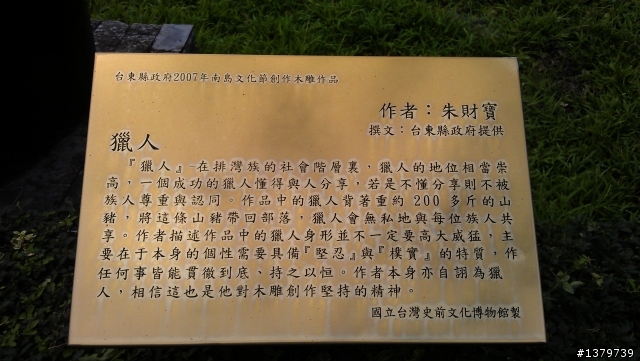 台東縣政府2007年南島文化節創作木雕作品
作者：朱財寶
撰文：台東縣政府提供
獵人
『獵人』-在排灣族的社會階層裏，獵人的地位相當崇
高，一個成功的獵人懂得與人分享，若是不懂分享則不被
族人尊重與認同。作品中的獵人背著重約 200 多斤的山
豬，將這條山豬帶回部落，獵人會無私地與每位族人共
享。作者描述作品中的獵人身形並不一定要高大威猛，主
要在于本身的個性需要具備『堅忍』與『樸實』的特質，作
任何事皆能貫徹到底、持之以恒。作者本身亦自詡為獵
人，相信這也是他對木雕創作堅持的精神。
國立台灣史前文化博物館製
#1379739